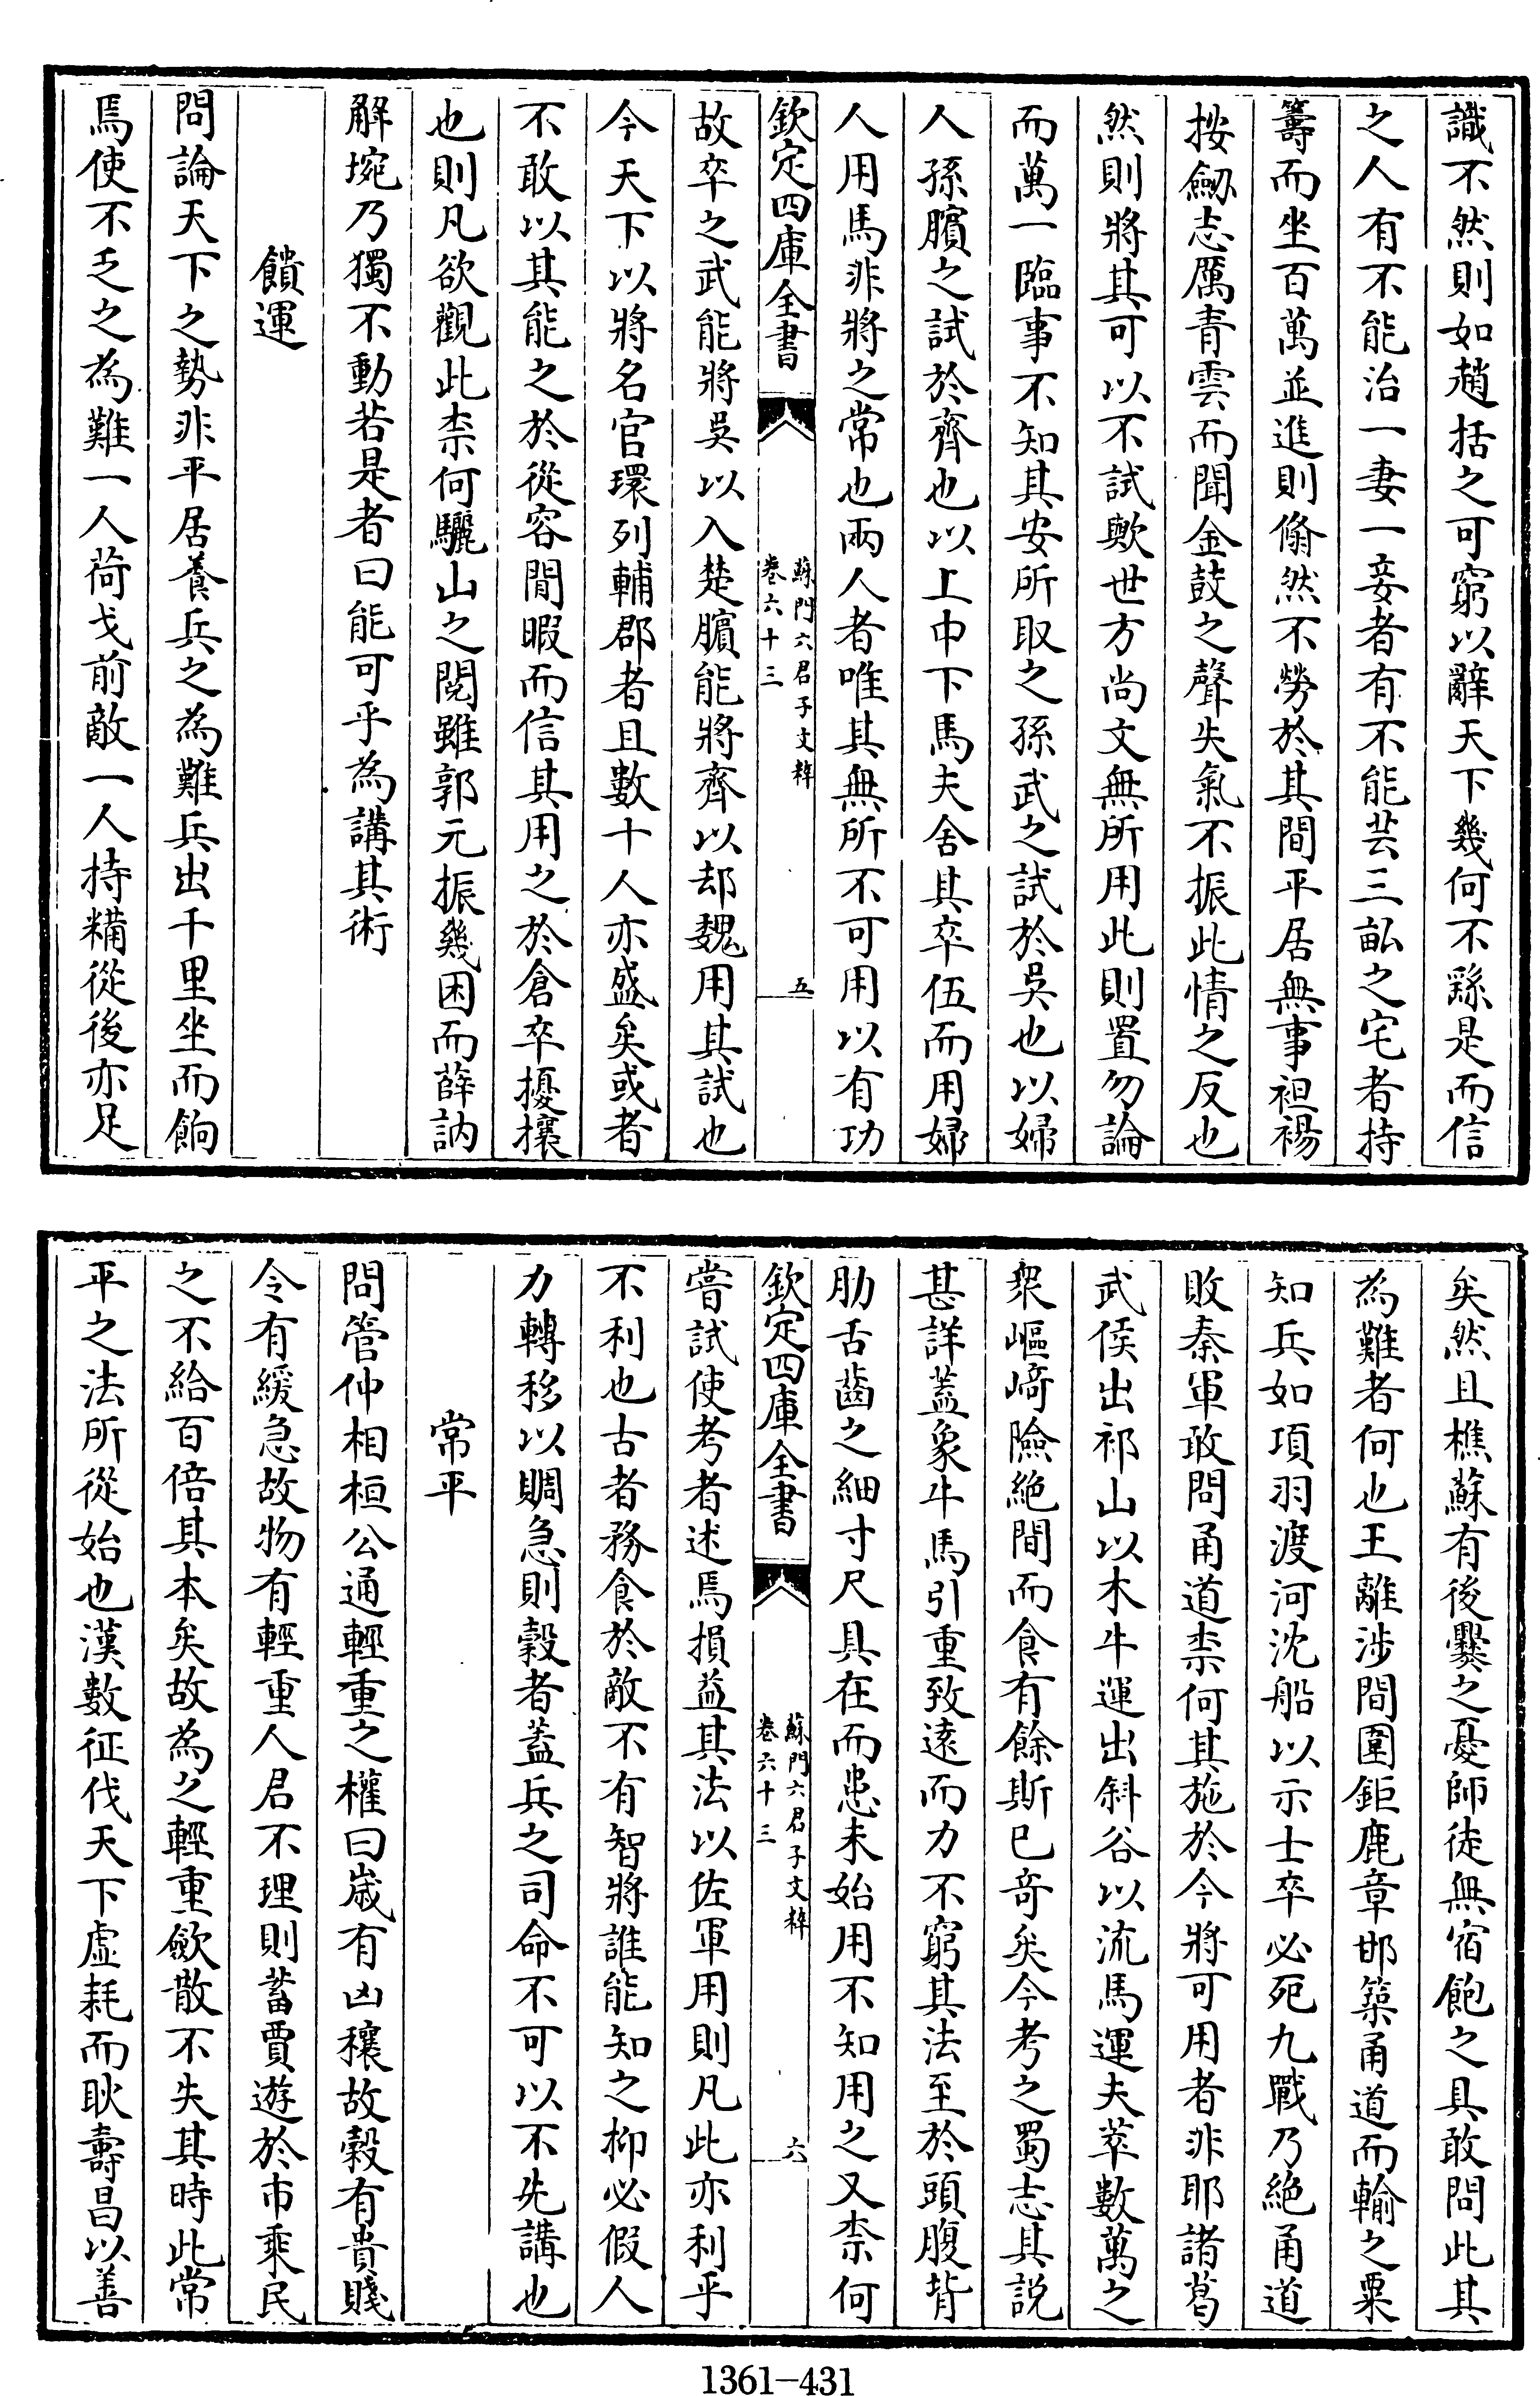 識不然則如趙括之可窮以辭天下幾何不繇是而信
之人有不能治一妻一妾者有不能芸三畝之宅者持
籌而坐百萬並進則翛然不勞於其間平居無事袒裼
按劒志厲青雲而聞金鼓之聲失氣不振此情之反也
然則將其可以不試歟世方尚文無所用此則置勿論
而萬一臨事不知其安所取之孫武之試於吳也以婦
人孫臏之試於齊也以上中下馬夫舍其卒伍而用婦
人用馬非將之常也兩人者唯其無所不可用以有功
欽定四庫全書
蘇門六君子文粹
卷六十三
五
故卒之武能將吳以入楚臏能將齊以却魏用其試也
今天下以將名官環列輔郡者且數十人亦盛矣或者
不敢以其能之於從容閒暇而信其用之於倉卒擾攘
也則凡欲觀此柰何驪山之閱雖郭元振幾困而薛訥
解琬乃獨不動若是者曰能可乎為講其術
饋運
問論天下之勢非平居養兵之為難兵出千里坐而餉
焉使不乏之為難一人荷戈前敵一人持糒從後亦足
矣然且樵蘇有後爨之憂師徒無宿飽之具敢問此其
為難者何也王離涉間圍鉅鹿章邯築甬道而輸之粟
知兵如項羽渡河沈船以示士卒必死九戰乃絶甬道
敗秦軍敢問甬道柰何其施於今將可用者非耶諸葛
武侯出祁山以木牛運出斜谷以流馬運夫萃數萬之
衆嶇﨑險絶間而食有餘斯已竒矣今考之蜀志其説
甚詳蓋象牛馬引重致逺而力不窮其法至於頭腹背
肋舌齒之細寸尺具在而患未始用不知用之又柰何
欽定四庫全書
蘇門六君子文粹
卷六十三
六
嘗試使考者述焉損益其法以佐軍用則凡此亦利乎
不利也古者務食於敵不有智將誰能知之抑必假人
力轉移以賙急則穀者蓋兵之司命不可以不先講也
常平
問管仲相桓公通輕重之權曰嵗有凶穰故穀有貴賤
令有緩急故物有輕重人君不理則蓄賈遊於市乘民
之不給百倍其本矣故為之輕重歛散不失其時此常
平之法所從始也漢數征伐天下虛耗而耿壽昌以善
1361-431